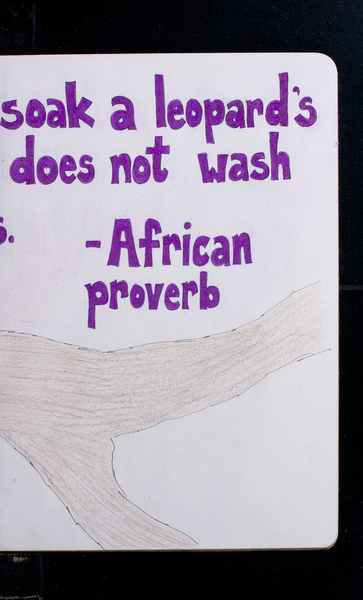 soak a leopard's
does not wash
s.
-African
proverb